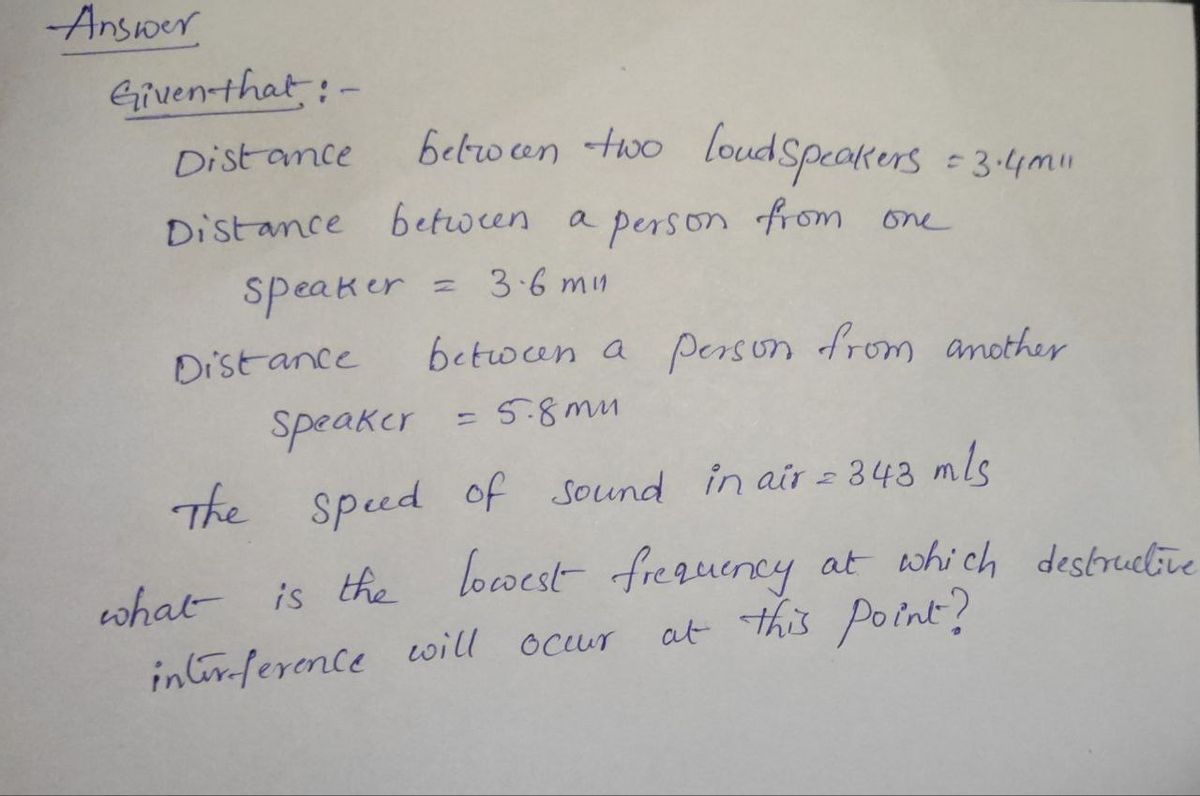 Answer
Given that :-
Distance between two loudspeakers = 3.4m"
Distance between a person from one
speaker = 3.6 m"
Distance between a person from another
speaker = 5.8m"
The speed of sound in air = 343 m/s
what is the lowest frequency at which destructive
interference will occur at this point?